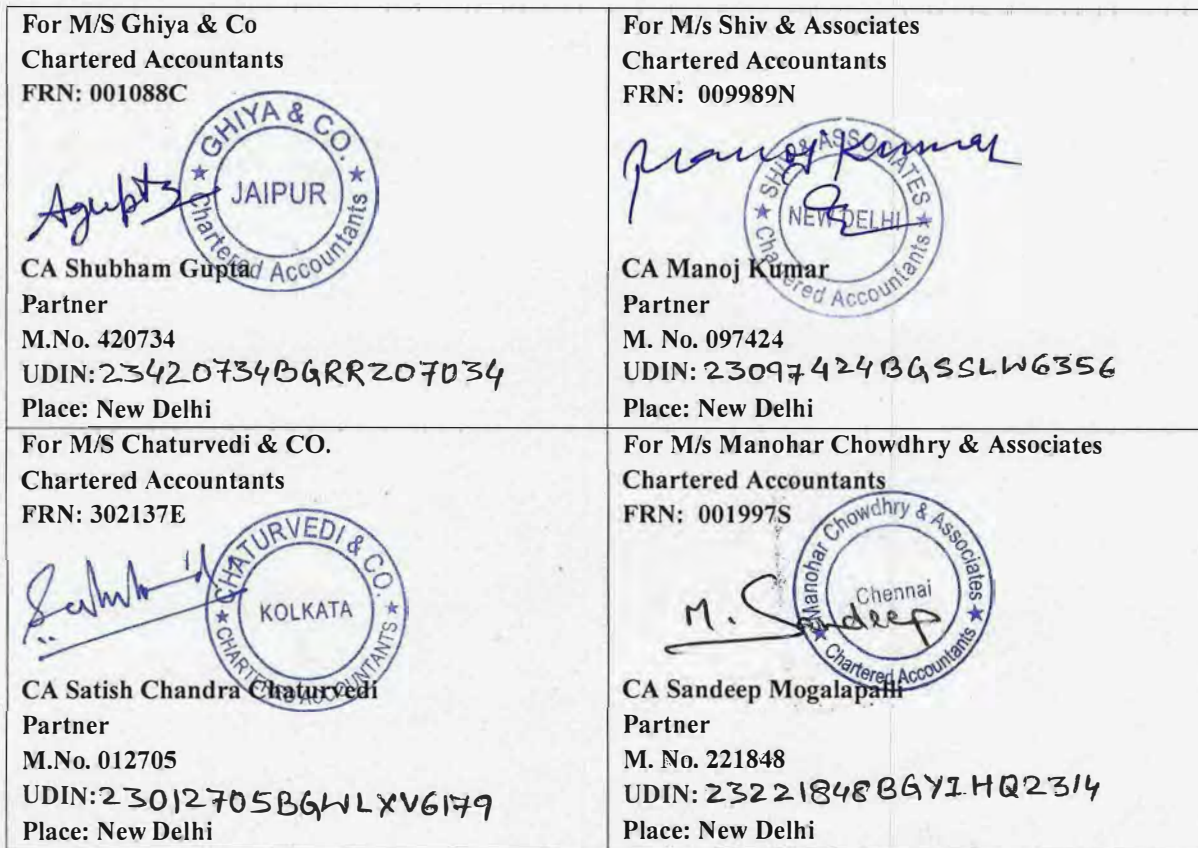 For M/S Ghiya & Co
Chartered Accountants
FRN: 001088C
GHIYA & CO.
JAIPUR
Chartered Accountants
Agupta
CA Shubham Gupta
Partner
M.No. 420734
UDIN: 23420734BGRRZO7034
Place: New Delhi
For M/s Shiv & Associates
Chartered Accountants
FRN: 009989N
Manoj Kumar
SHIV & ASSOCIATES
NEW DELHI
Chartered Accountants
CA Manoj Kumar
Partner
M. No. 097424
UDIN: 23097424BGSSLW6356
Place: New Delhi
For M/S Chaturvedi & CO.
Chartered Accountants
FRN: 302137E
CHATURVEDI & CO.
KOLKATA
CHARTERED ACCOUNTANTS
CA Satish Chandra Chaturvedi
Partner
M.No. 012705
UDIN: 23012705BGWLXV6179
Place: New Delhi
For M/s Manohar Chowdhry & Associates
Chartered Accountants
FRN: 001997S
Manohar Chowdhry & Associates
Chennai
Chartered Accountants
M. Sandeep
CA Sandeep Mogalapalli
Partner
M. No. 221848
UDIN: 23221848BGYIHQ2314
Place: New Delhi